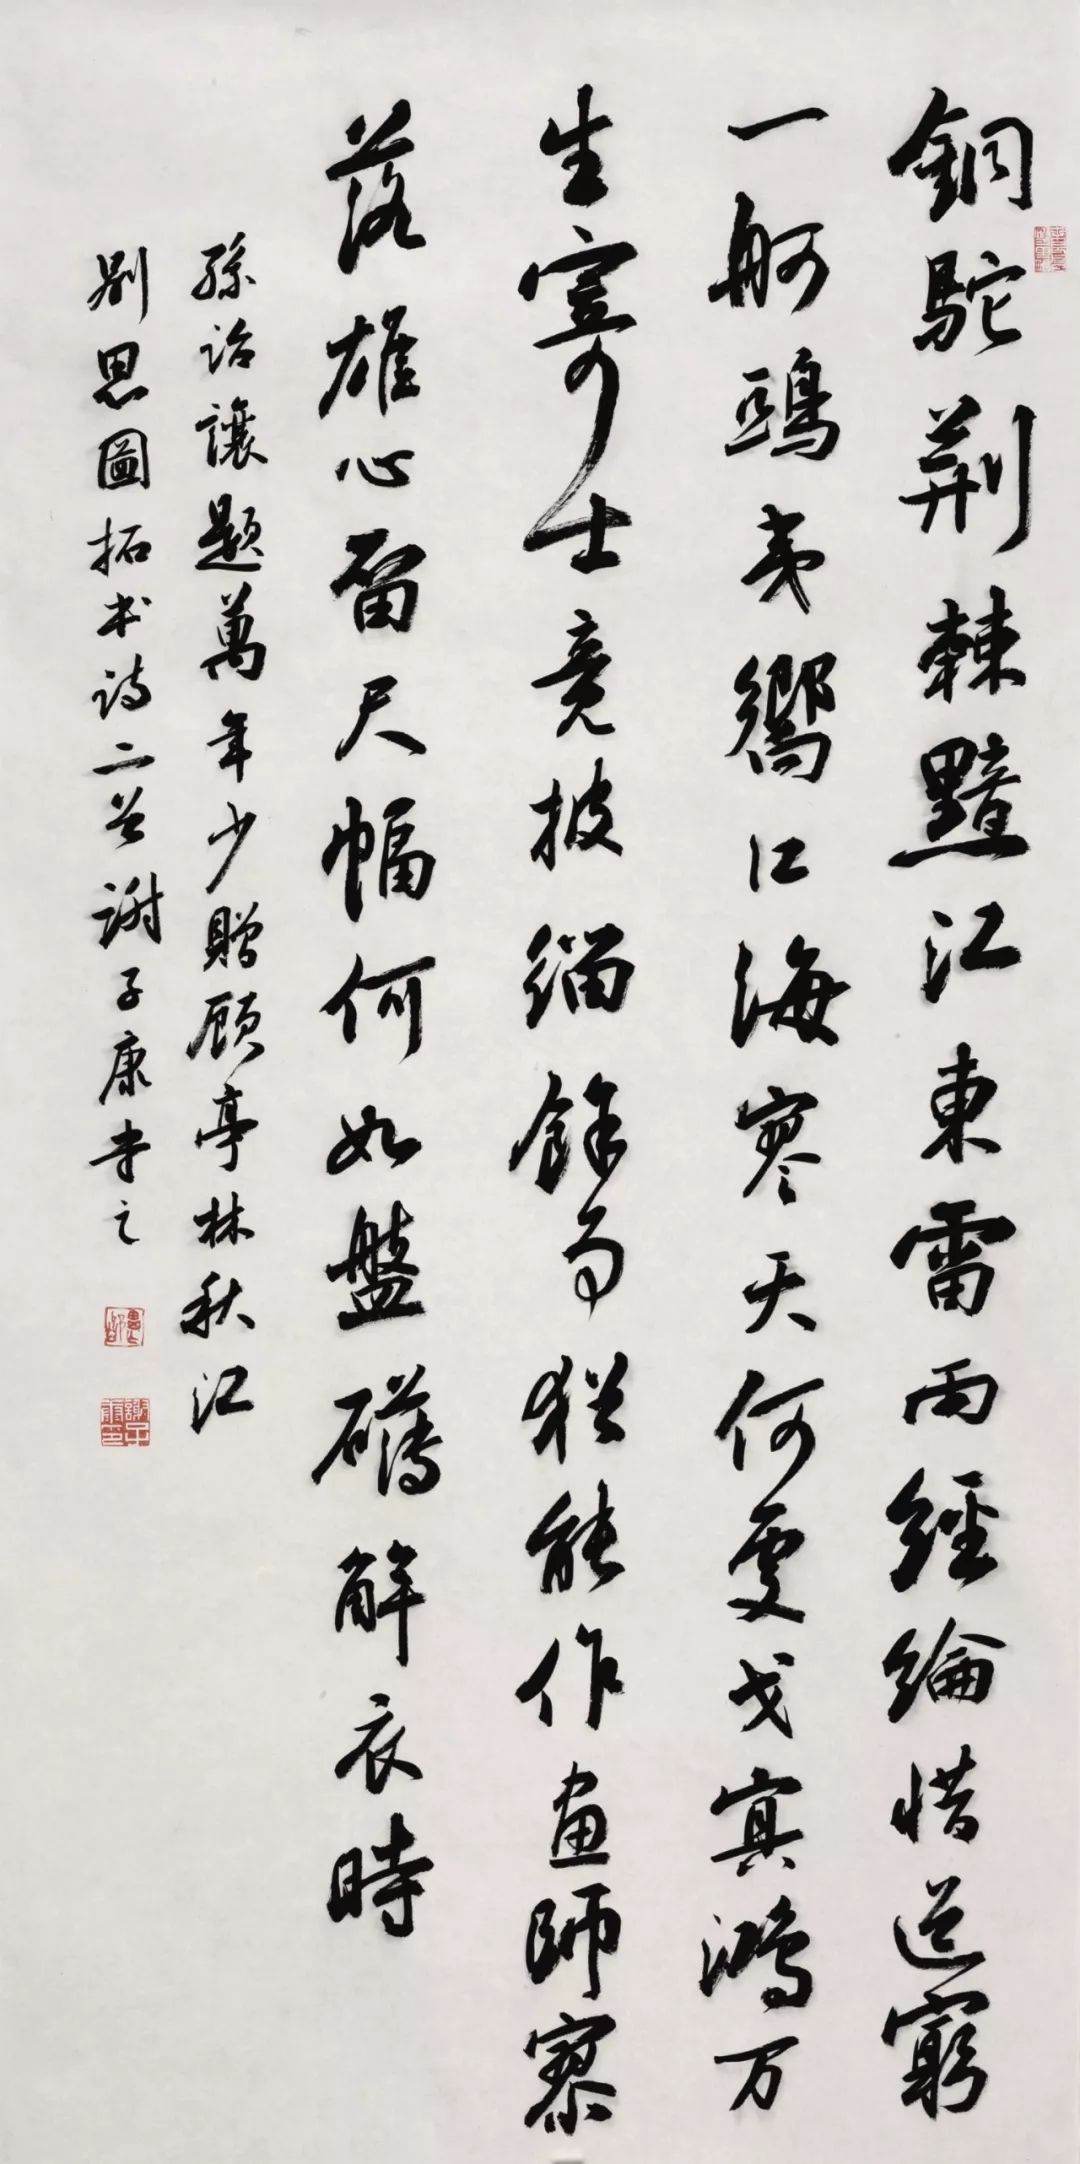 銅駝荆棘黯江東雷雨經綸惜道窮
一舸鴟夷嚮江海寥天何處弋冥鴻万
生奇士竟披緇餘事猶能作画師寥
落雄心留尺幅何如盤礴解衣時
孫詒讓題萬年少贈顾亭林秋江
别思圖拓本詩二首謝子康书之